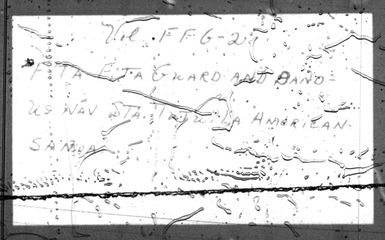 Vol. FFG-2
FITA FITA GUARD AND BAND-
US NAV STA. TUTUILA AMERICAN
SAMOA